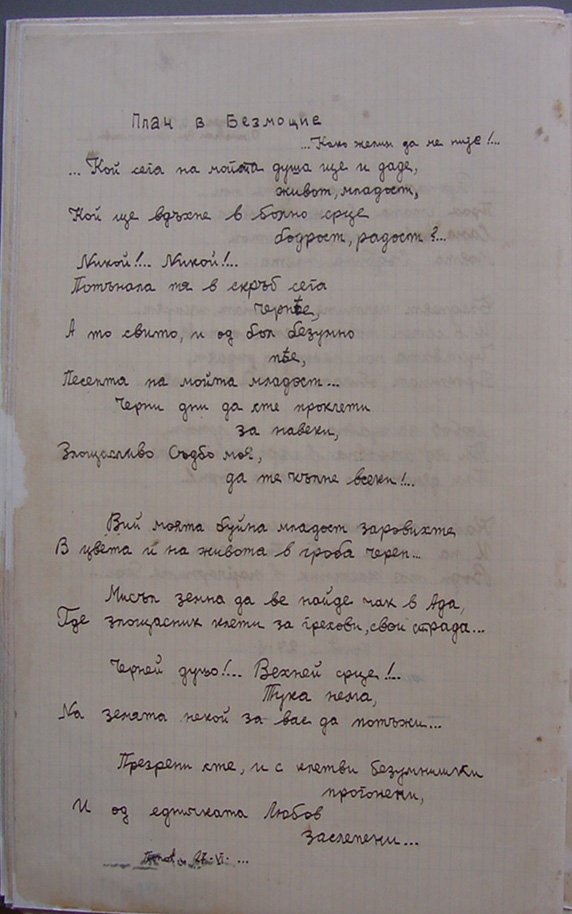 Плач в Безмоцие
...Како желин да ме пице!...
... Кой сега на мойта душа ще и даде,
живот, младост,
Кой ще вдъхне в болно срце
бодрост, радост?...
Никой!... Никой!...
Потънала тя в скръб сега
чернѣе,
А то свито, и од бол безумно
пѣе,
Песента на мойта младост...
Черни дни да сте проклети
за навеки,
Злощасливо Съдбо моя,
да те кълне всеки!...
Вий моята буйна младост заровихте
В цвета и на живота в гроба черен...
Мисъл земна да ве найде чак в Ада,
Где злощасник клети за грехови, свои страда...
Черней душо!... Вехней срце!...
Тука нема,
На земята некой за вас да потъжи...
Презрени сте, и с клетви безумнишки
прогонени,
И од едничката Любов
Заслепени...
27.VI. ...